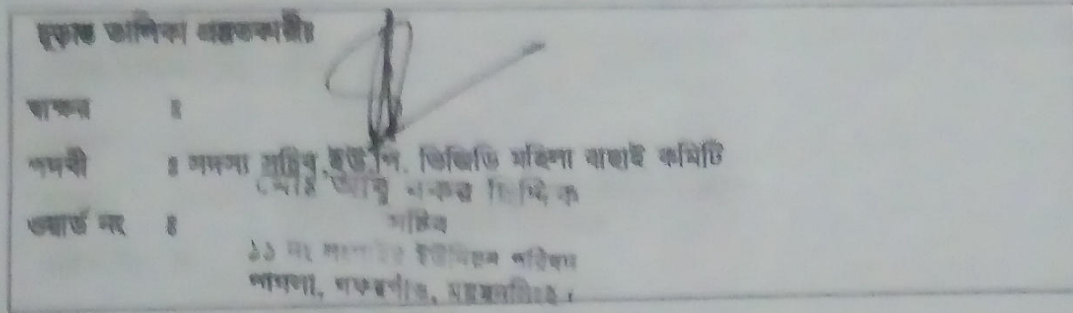 চূড়ান্ত তালিকা প্রস্তুতকারীঃ
স্বাক্ষর ঃ
পদবী ঃ সদস্য সচিব, ইউ.পি. ভিজিডি মহিলা বাছাই কমিটি
মোঃ আবু বকর ছিদ্দিক
ওয়ার্ড নং ঃ সচিব
১১ নং ইউনিয়ন পরিষদ
পাগলা, গফরগাঁও, ময়মনসিংহ।